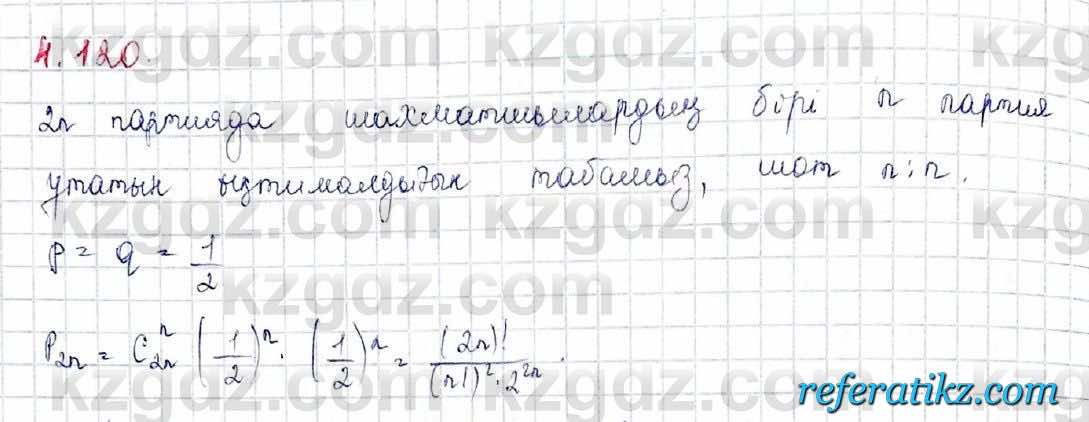 4.120.
2n партияда шахматшылардың бірі n партия
ұтатын ықтималдығын табамыз, шот n:n.
P = q = 1/2
P₂ₙ = C₂ₙⁿ (1/2)ⁿ · (1/2)ⁿ = (2n)! / ((n!)² · 2²ⁿ).
kzgdz.com
referatikz.com